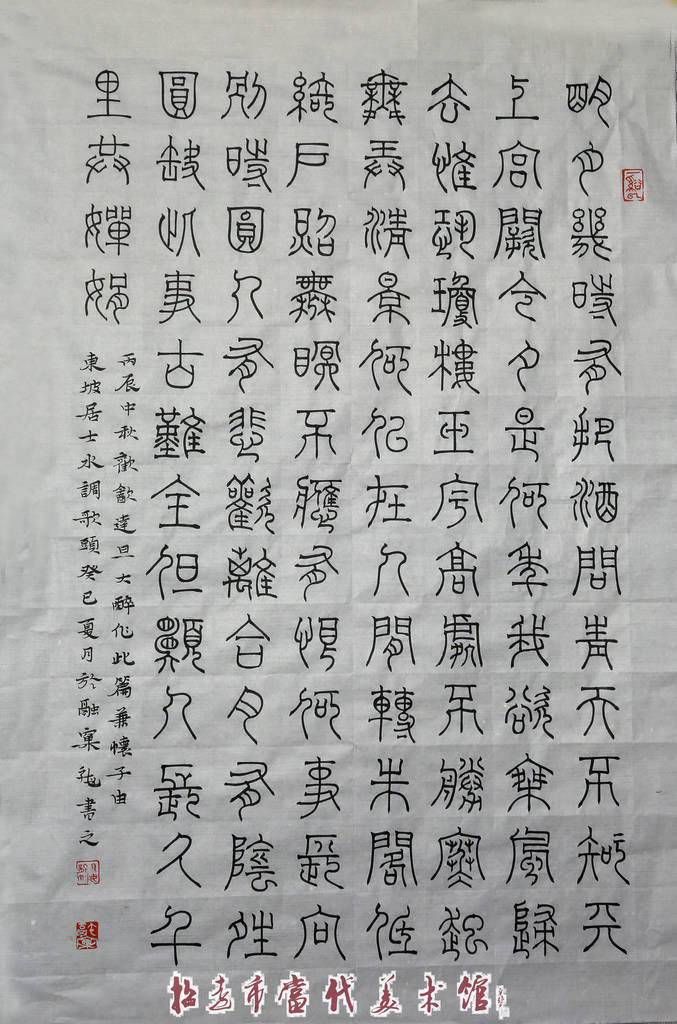 明月幾時有把酒問青天不知天
上宮闕今夕是何年我欲乘風歸
去惟恐瓊樓玉宇高處不勝寒起
舞弄清景何似在人間轉朱閣低
綺戶照無眠不應有恨何事長向
別時圓人有悲歡離合月有陰晴
圓缺此事古難全但願人長久千
里共嬋娟
丙辰中秋歡飲達旦大醉作此篇兼懷子由
東坡居士水調歌頭癸巳夏月於融書之
招远市當代美术馆